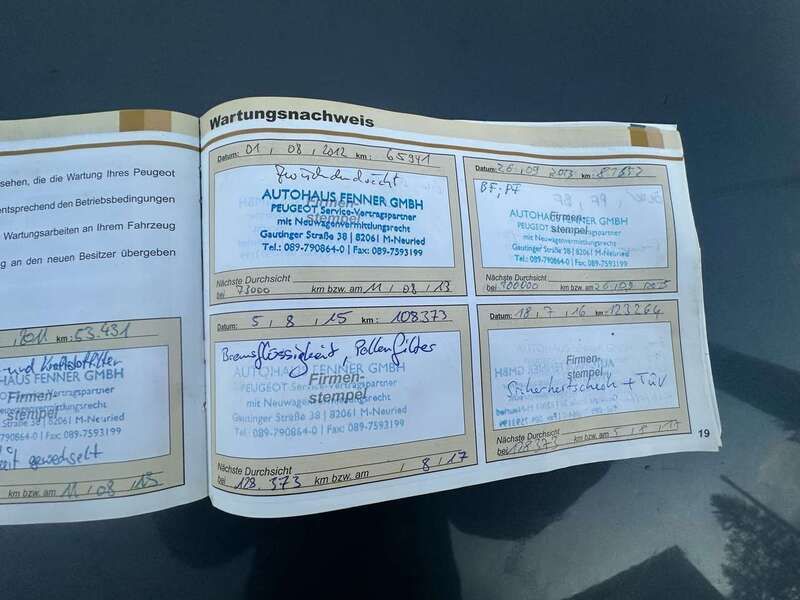 sehen, die die Wartung Ihres Peugeot
entsprechend den Betriebsbedingungen
Wartungsarbeiten an Ihrem Fahrzeug
g an den neuen Besitzer übergeben
2011 km: 53.431
- und Kraftstofffilter
HAUS FENNER GMBH
Firmen-
stempel
OT Service-Vertragspartner
wagenvermittlungsrecht
Straße 38 | 82061 M-Neuried
790864-0 | Fax: 089-7593199
gewechselt
km bzw. am 11, 08, 13
Wartungsnachweis
Datum: 01, 08, 2012 km: 65941
Zwischendurchsicht
AUTOHAUS FENNER GMBH
Firmen-
stempel
PEUGEOT Service-Vertragspartner
mit Neuwagenvermittlungsrecht
Gautinger Straße 38 | 82061 M-Neuried
Tel.: 089-790864-0 | Fax: 089-7593199
Nächste Durchsicht
bei 73000 km bzw. am 11, 08, 13
Datum: 26, 09, 2013 km: 81657
BF, PF
AUTOHAUS FENNER GMBH
Firmen-
stempel
PEUGEOT Service-Vertragspartner
mit Neuwagenvermittlungsrecht
Gautinger Straße 38 | 82061 M-Neuried
Tel.: 089-790864-0 | Fax: 089-7593199
Nächste Durchsicht
bei 100000 km bzw. am 26, 09, 2015
Datum: 5, 8, 15 km: 108373
Bremsflüssigkeit, Pollenfilter
AUTOHAUS FENNER GMBH
Firmen-
stempel
PEUGEOT Service-Vertragspartner
mit Neuwagenvermittlungsrecht
Gautinger Straße 38 | 82061 M-Neuried
Tel.: 089-790864-0 | Fax: 089-7593199
Nächste Durchsicht
bei 128.373 km bzw. am , 8, 17
Datum: 18, 7, 16 km: 123264
Firmen-
stempel
Sicherheitscheck + TÜV
Nächste Durchsicht
bei 128373 km bzw. am 5, 8, 17
19